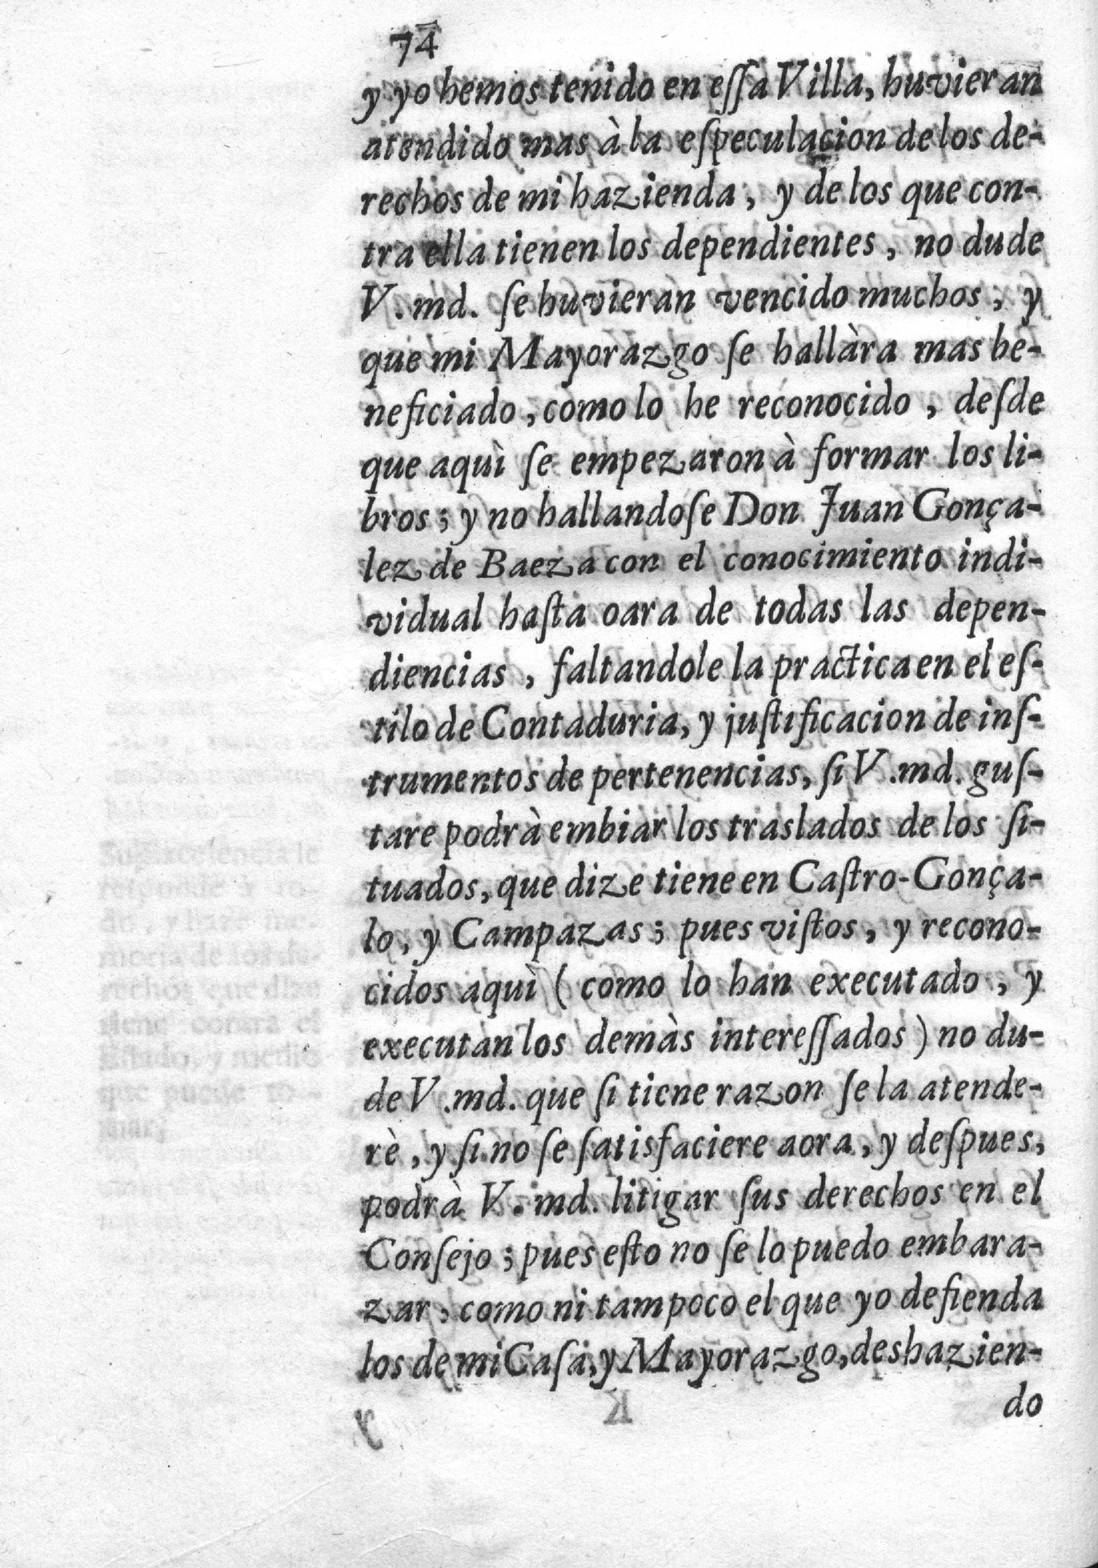 74
y yo hemos tenido en eſſa Villa, huvieran
atendido mas à la eſpeculacion de los de-
rechos de mi hazienda, y de los que con-
tra ella tienen los dependientes, no dude
V.md. ſe huvieran vencido muchos, y
que mi Mayorazgo ſe hallàra mas be-
neficiado, como lo he reconocido, deſde
que aquì ſe empezaron à formar los li-
bros; y no hallandoſe Don Juan Gonça-
lez de Baeza con el conocimiento indi-
vidual haſta oara de todas las depen-
diencias, faltandole la practica en el eſ-
tilo de Contaduria, y juſtificacion de inſ-
trumentos de pertenencias, ſi V.md. guſ-
tare podrà embiar los traslados de los ſi-
tuados, que dize tiene en Caſtro-Gonça-
lo, y Campazas; pues viſtos, y recono-
cidos aquì (como lo han executado, y
executan los demàs intereſſados) no du-
de V.md. que ſi tiene razon ſe la atende-
rè, y ſi no ſe ſatisfaciere aora, y deſpues,
podrà V.md. litigar ſus derechos en el
Conſejo; pues eſto no ſe lo puedo embara-
zar, como ni tampoco el que yo defienda
los de mi Caſa, y Mayorazgo, deshazien-
do